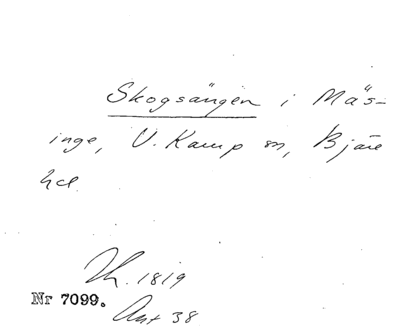 Skogsängen i Mäs-
inge, V. Karup sn, Bjäre
hd.
Th. 1819
Nr 7099.
Ant 38